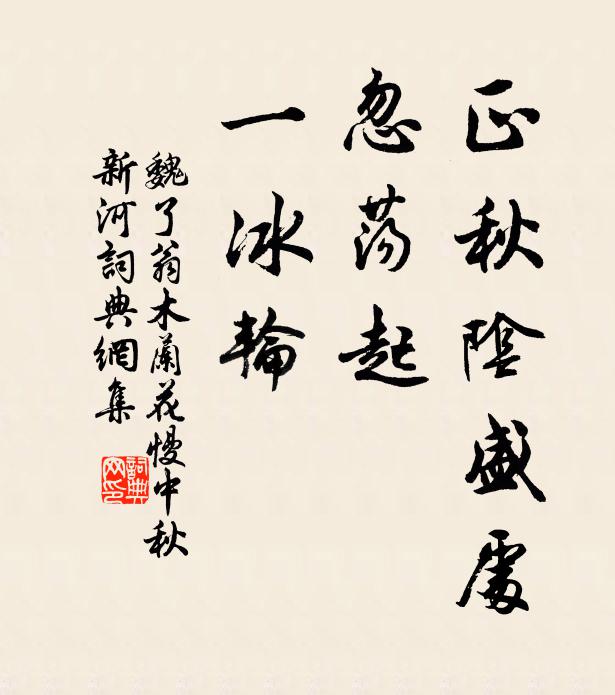 正秋陰盛處
忽蕩起
一冰輪
魏了翁木蘭花慢中秋
新河詞典網集
詞典網印